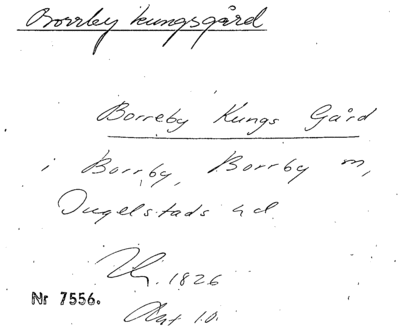 Borrby kungsgård
Borreby Kungs Gård
i Borrby, Borrby m,
Ingelstads hd
1826
Nr 7556.
Akt 10.